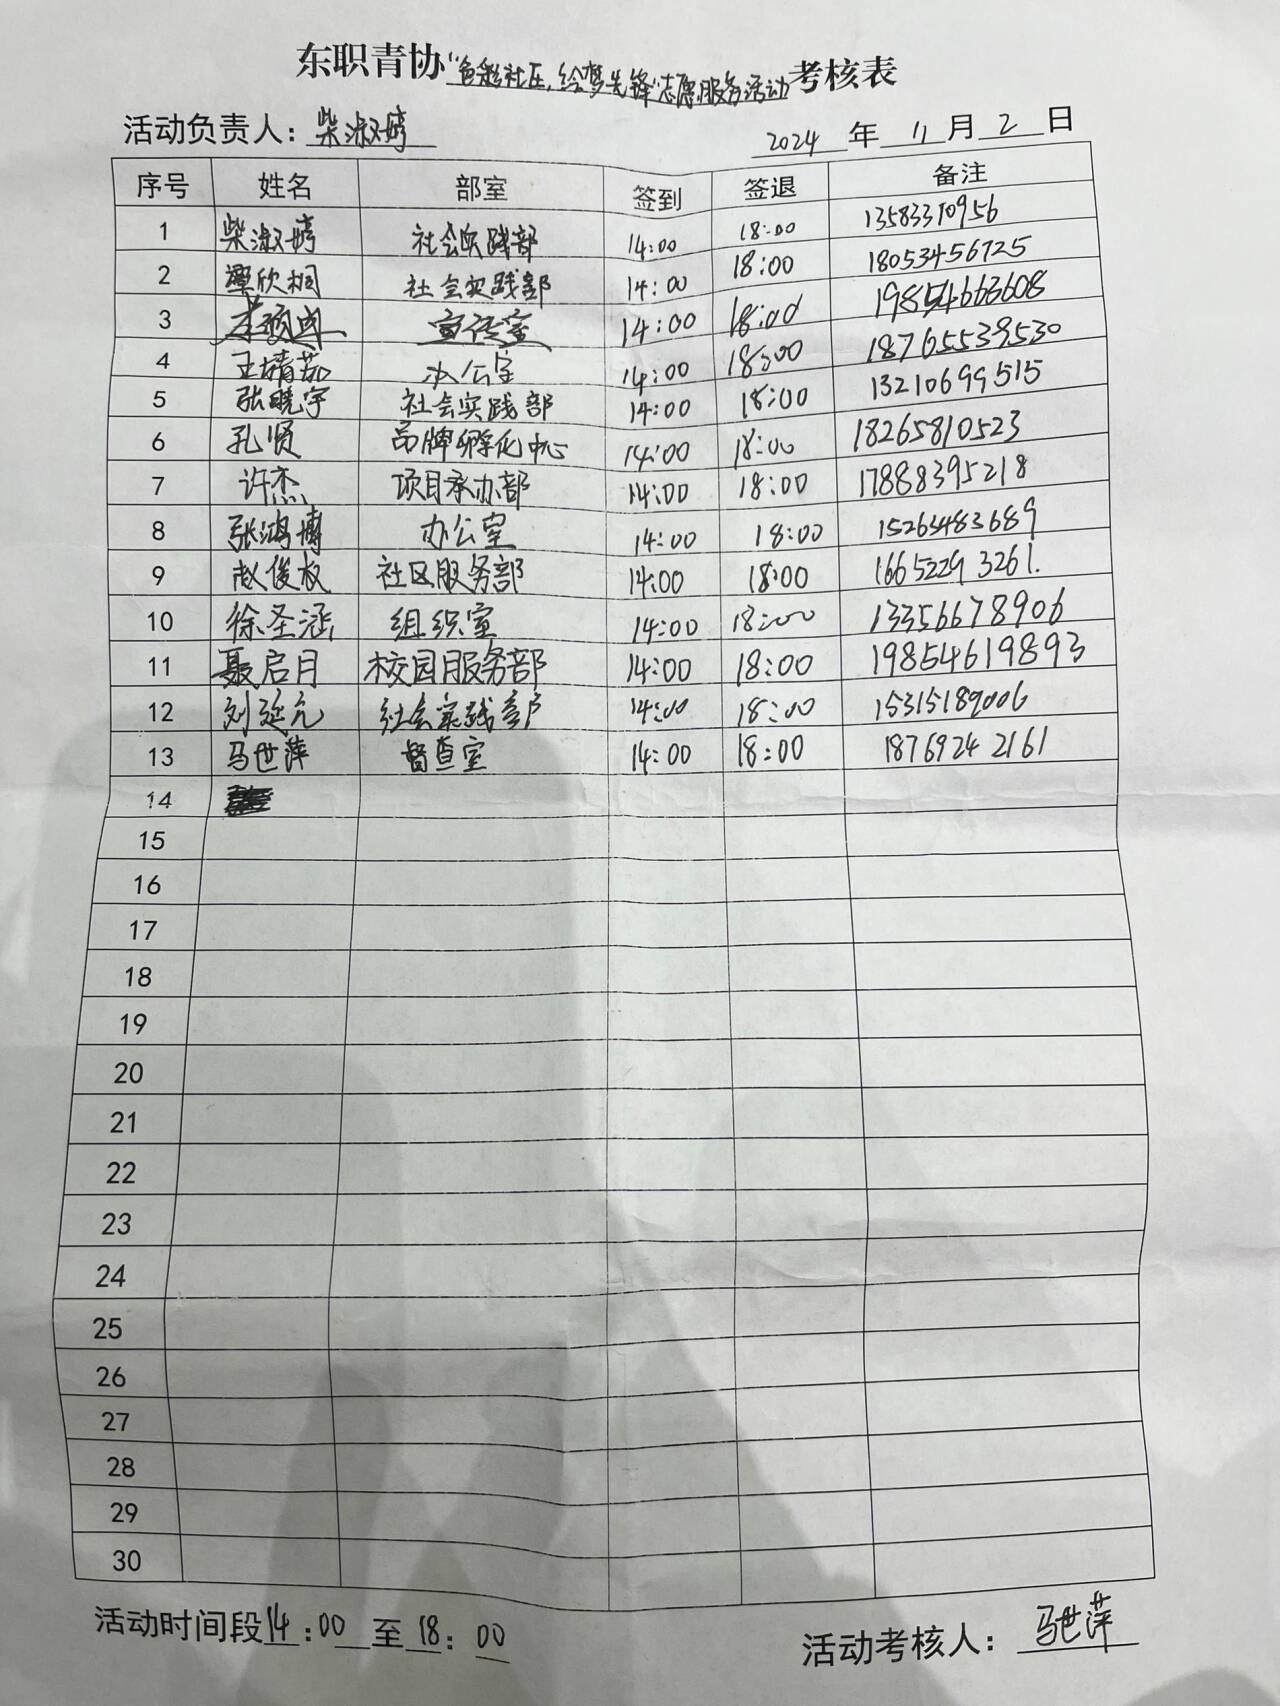 东职青协"色彩社区,绘梦先锋"志愿服务活动考核表
活动负责人：柴淑婷 2024年11月2日
序号 姓名 部室 签到 签退 备注
1 柴淑婷 社会实践部 14:00 18:00 13583370956
2 覃欣桐 社会实践部 14:00 18:00 18053456725
3 宣传室 14:00 18:00 19854663608
4 王婧茹 办公室 14:00 18:00 18765539530
5 张晓宇 社会实践部 14:00 18:00 13210699515
6 孔贤 品牌孵化中心 14:00 18:00 18265810523
7 许杰 项目承办部 14:00 18:00 17888395218
8 张鸿博 办公室 14:00 18:00 15263483689
9 赵俊权 社区服务部 14:00 18:00 16652293261.
10 徐圣涵 组织室 14:00 18:00 13356678906
11 聂启月 校园服务部 14:00 18:00 19854619893
12 刘延允 社会实践部 14:00 18:00 15315189006
13 马世萍 督查室 14:00 18:00 18769242161
14
15
16
17
18
19
20
21
22
23
24
25
26
27
28
29
30
活动时间段14:00至18:00 活动考核人：马世萍